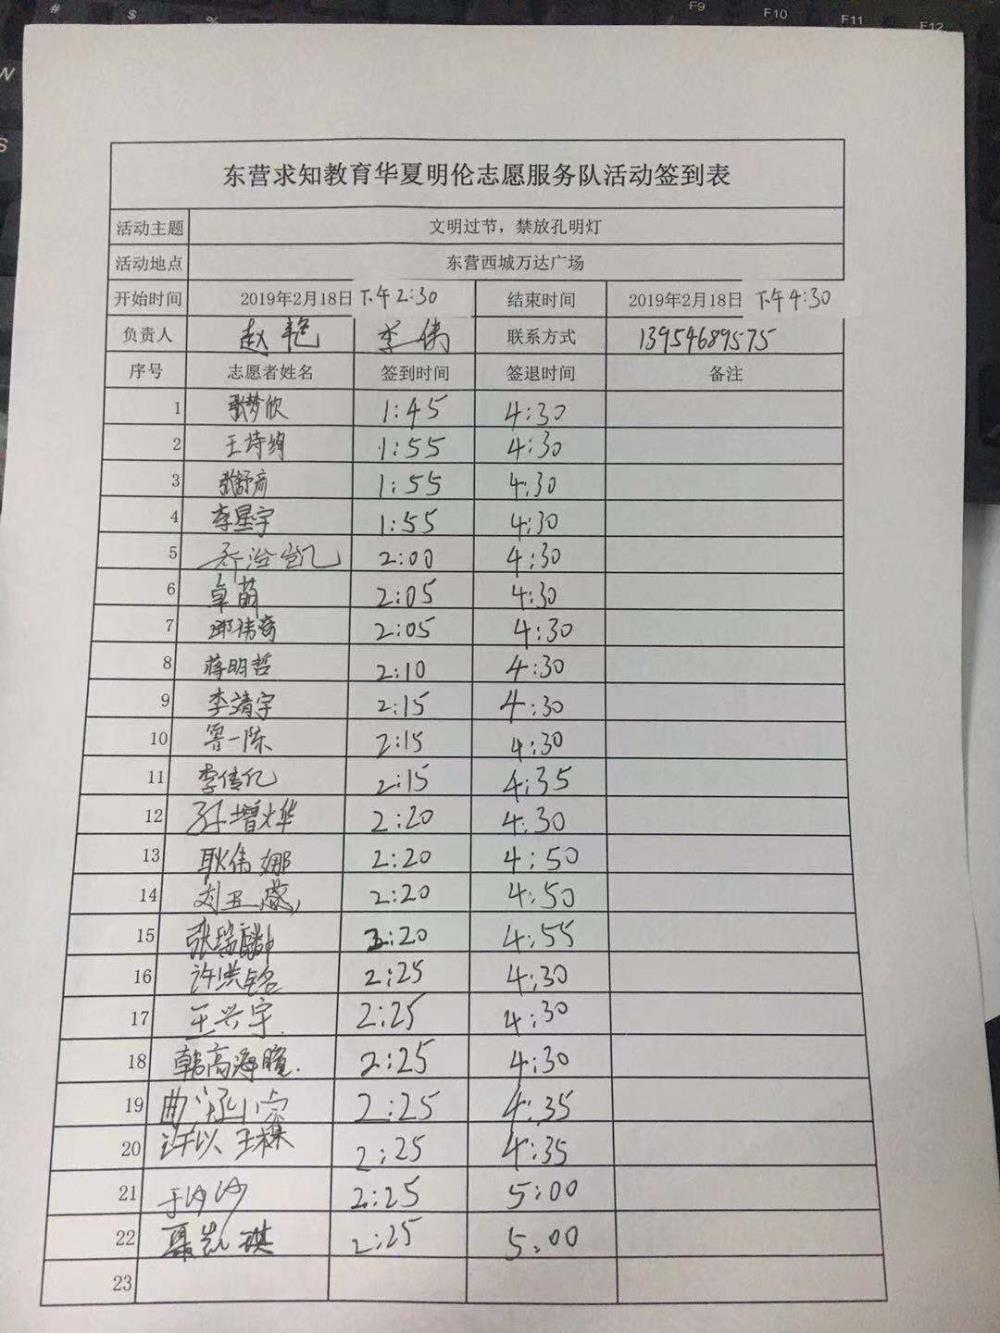 东营求知教育华夏明伦志愿服务队活动签到表
活动主题 文明过节，禁放孔明灯
活动地点 东营西城万达广场
开始时间 2019年2月18日 下午2:30 结束时间 2019年2月18日 下午4:30
负责人 赵艳 李伟 联系方式 13954689575
序号 志愿者姓名 签到时间 签退时间 备注
1 张梦欣 1:45 4:30
2 王诗绚 1:55 4:30
3 张舒彦 1:55 4:30
4 李星宇 1:55 4:30
5 2:00 4:30
6 卓萌 2:05 4:30
7 邓祎奇 2:05 4:30
8 蒋明哲 2:10 4:30
9 李靖宇 2:15 4:30
10 鲁一陈 2:15 4:30
11 李传亿 2:15 4:35
12 孙增烨 2:20 4:30
13 耿伟娜 2:20 4:50
14 2:20 4:50
15 张瑞麟 2:20 4:55
16 许洪铭 2:25 4:30
17 王兴宇 2:25 4:30
18 韩高海瞳 2:25 4:30
19 2:25 4:35
20 许以 2:25 4:35
21 于沙沙 2:25 5:00
22 聂凯琪 2:25 5:00
23
F9 F10 F11 F12
# $ %
W
S